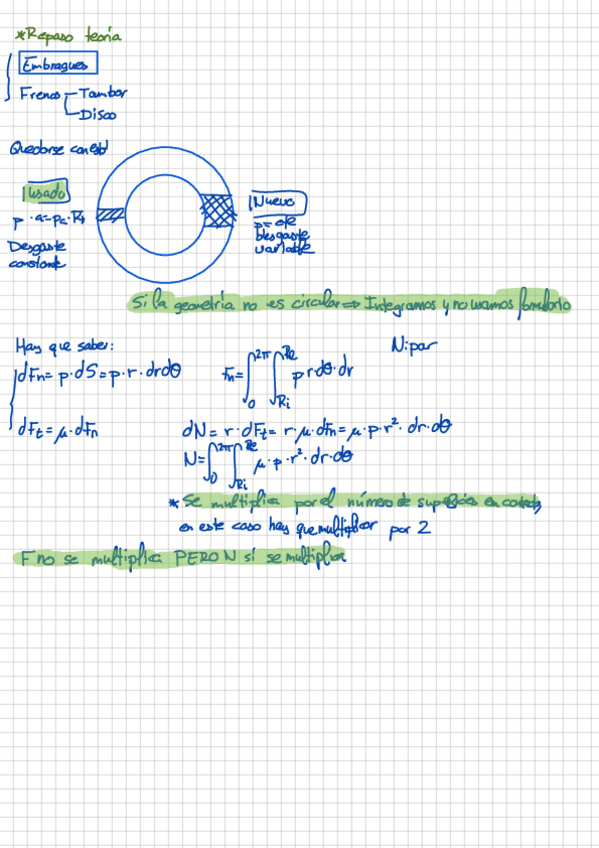 *Repaso teoría
Embragues
Frenos Tambor
Disco
Quedarse con esto
Usado
p · a = pa · Ri
Desgaste
constante
Nuevo
p = cte
Desgaste
variable
Si la geometría no es circular => Integramos y no usamos formulario
Hay que saber:
N: par
dFn = p · dS = p · r · drdθ
Fn = ∫₀^2π ∫Ri^Re p r dθ · dr
dFt = μ · dFn
dN = r · dFt = r · μ · dFn = μ · p · r² · dr · dθ
N = ∫₀^2π ∫Ri^Re μ · p · r² · dr · dθ
* Se multiplica por el número de superficies en contacto,
en este caso hay que multiplicar por 2
F no se multiplica PERO N si se multiplica